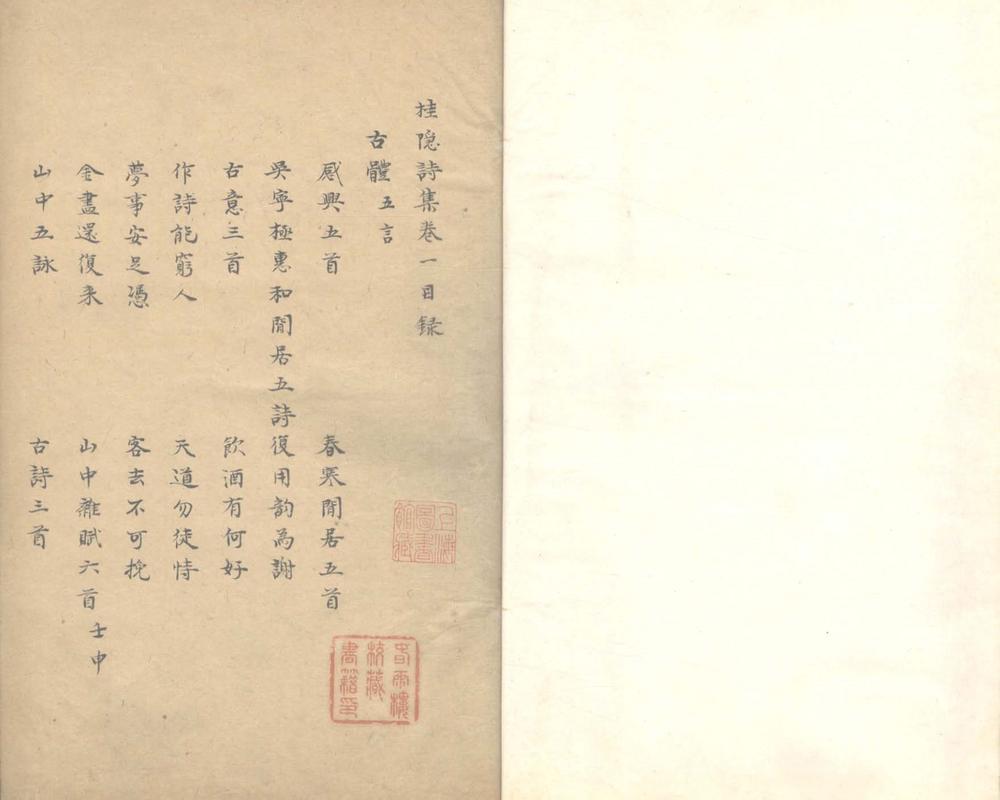 桂隐詩集卷一目録
古體五言
感興五首　春寒閒居五首
吳寧極惠和閒居五詩復用韵為謝
古意三首　飲酒有何好
作詩能窮人　天道勿徒恃
夢事安足憑　客去不可挽
金盡還復来　山中雜賦六首壬申
山中五詠　古詩三首
上海圖書館藏
春雨樓校藏書籍印